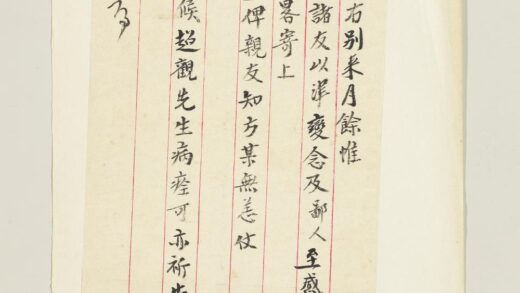 右别来月餘惟
諸友以洋變念及鄙人至感
畧寄上
俾親友知方某無恙仗
候超觀先生病痊可亦祈先